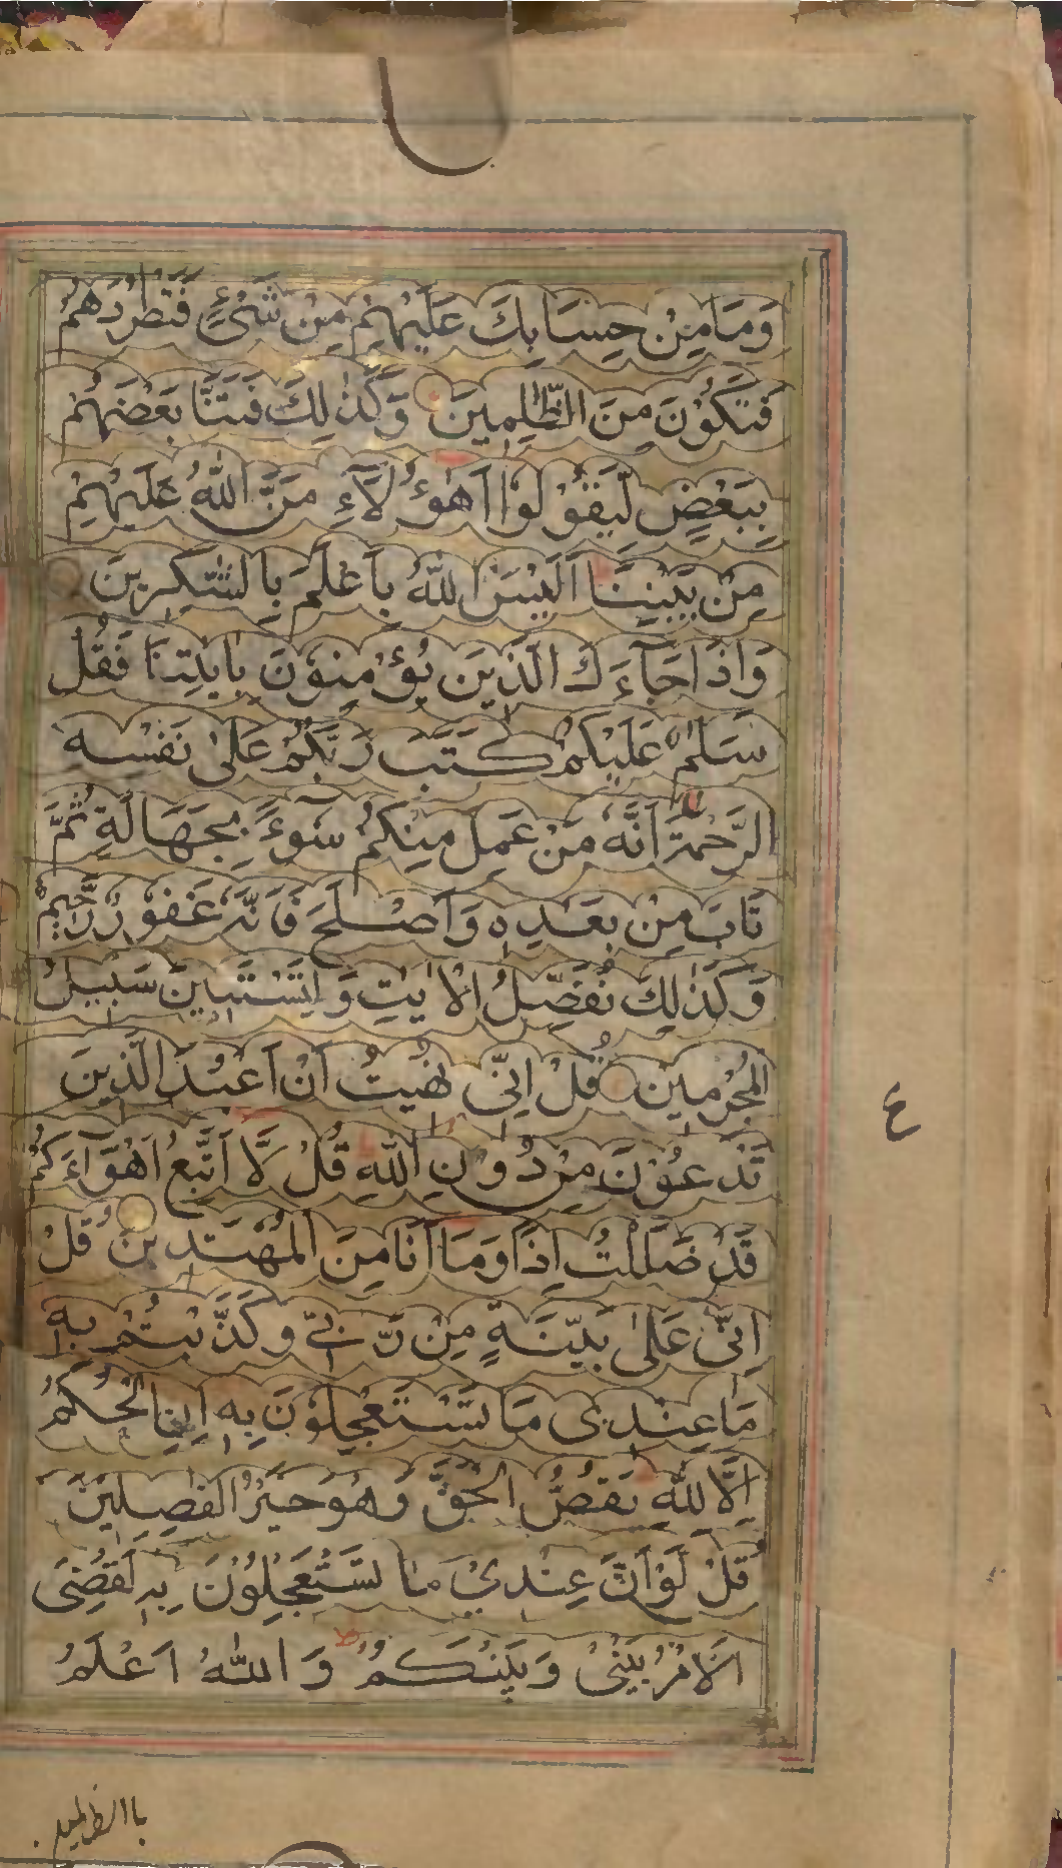 وَمَا مِنْ حِسَابِكَ عَلَيْهِمْ مِنْ شَىْءٍ فَتَطْرُدَهُمْ
فَتَكُوْنَ مِنَ الظّٰلِمِيْنَ وَكَذٰلِكَ فَتَنَّا بَعْضَهُمْ
بِبَعْضٍ لِّيَقُوْلُوْا اَهٰؤُلَآءِ مَنَّ اللّٰهُ عَلَيْهِمْ
مِنْ بَيْنِنَا اَلَيْسَ اللّٰهُ بِاَعْلَمَ بِالشّٰكِرِيْنَ
وَاِذَا جَآءَكَ الَّذِيْنَ يُؤْمِنُوْنَ بِاٰيٰتِنَا فَقُلْ
سَلٰمٌ عَلَيْكُمْ كَتَبَ رَبُّكُمْ عَلٰى نَفْسِهِ
الرَّحْمَةَ اَنَّهٗ مَنْ عَمِلَ مِنْكُمْ سُوْٓءًۢ بِجَهَالَةٍ ثُمَّ
تَابَ مِنْ بَعْدِهٖ وَاَصْلَحَ فَاَنَّهٗ غَفُوْرٌ رَّحِيْمٌ
وَكَذٰلِكَ نُفَصِّلُ الْاٰيٰتِ وَلِتَسْتَبِيْنَ سَبِيْلُ
الْمُجْرِمِيْنَ قُلْ اِنِّىْ نُهِيْتُ اَنْ اَعْبُدَ الَّذِيْنَ
تَدْعُوْنَ مِنْ دُوْنِ اللّٰهِ قُلْ لَّا اَتَّبِعُ اَهْوَآءَكُمْ
قَدْ ضَلَلْتُ اِذًا وَمَا اَنَا مِنَ الْمُهْتَدِيْنَ قُلْ
اِنِّىْ عَلٰى بَيِّنَةٍ مِنْ رَّبِّىْ وَكَذَّبْتُمْ بِهٖ
مَا عِنْدِىْ مَا تَسْتَعْجِلُوْنَ بِهٖ اِنِ الْحُكْمُ
اِلَّا لِلّٰهِ يَقُصُّ الْحَقَّ وَهُوَ خَيْرُ الْفٰصِلِيْنَ
قُلْ لَوْ اَنَّ عِنْدِىْ مَا تَسْتَعْجِلُوْنَ بِهٖ لَقُضِىَ
الْاَمْرُ بَيْنِىْ وَبَيْنَكُمْ وَاللّٰهُ اَعْلَمُ
ع
باالظلمين